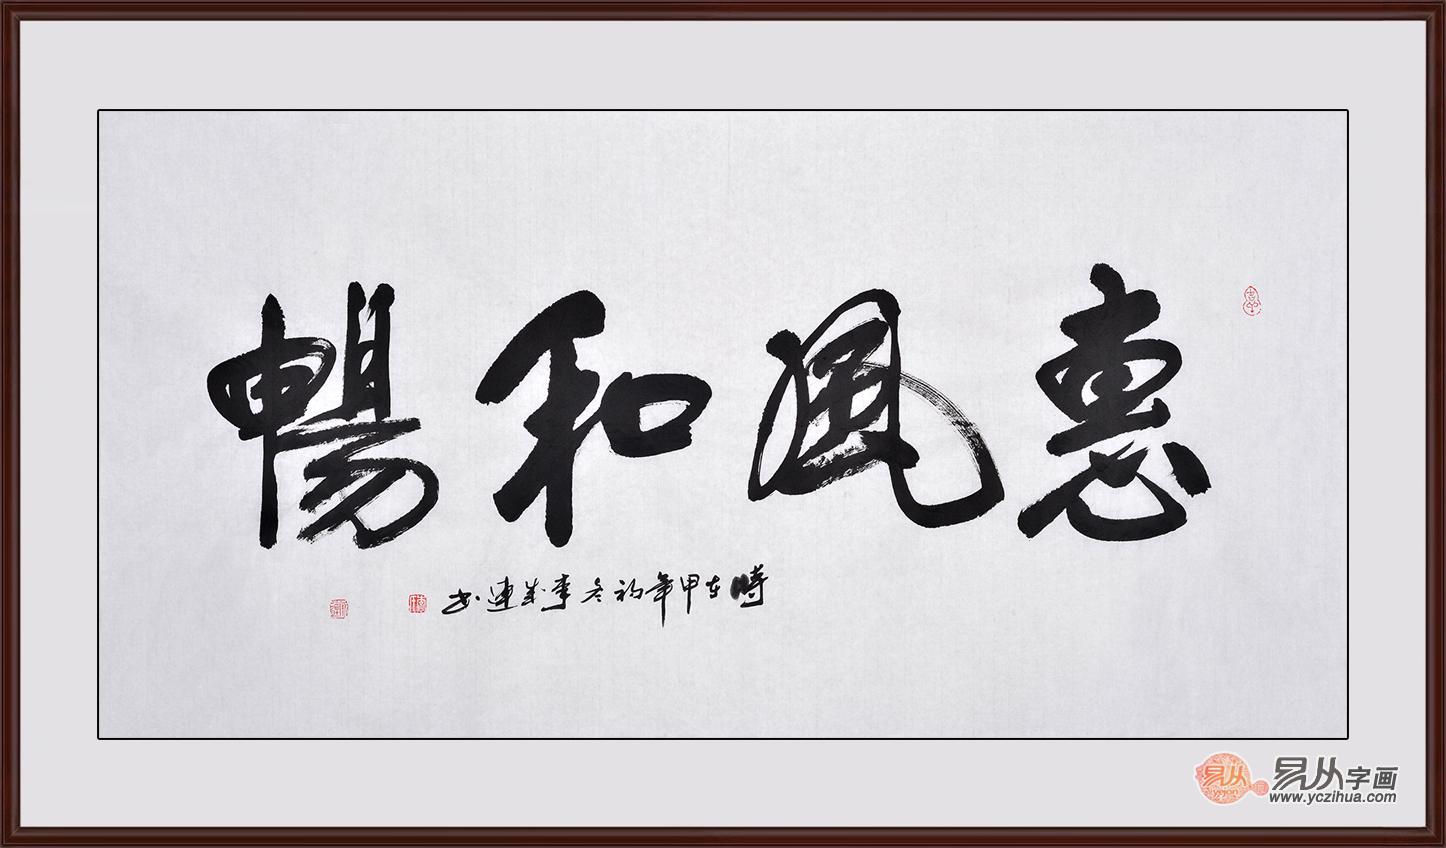 惠風和暢
時在甲午年初冬李成連书
易从
yicon
易从字画
www.yczihua.com